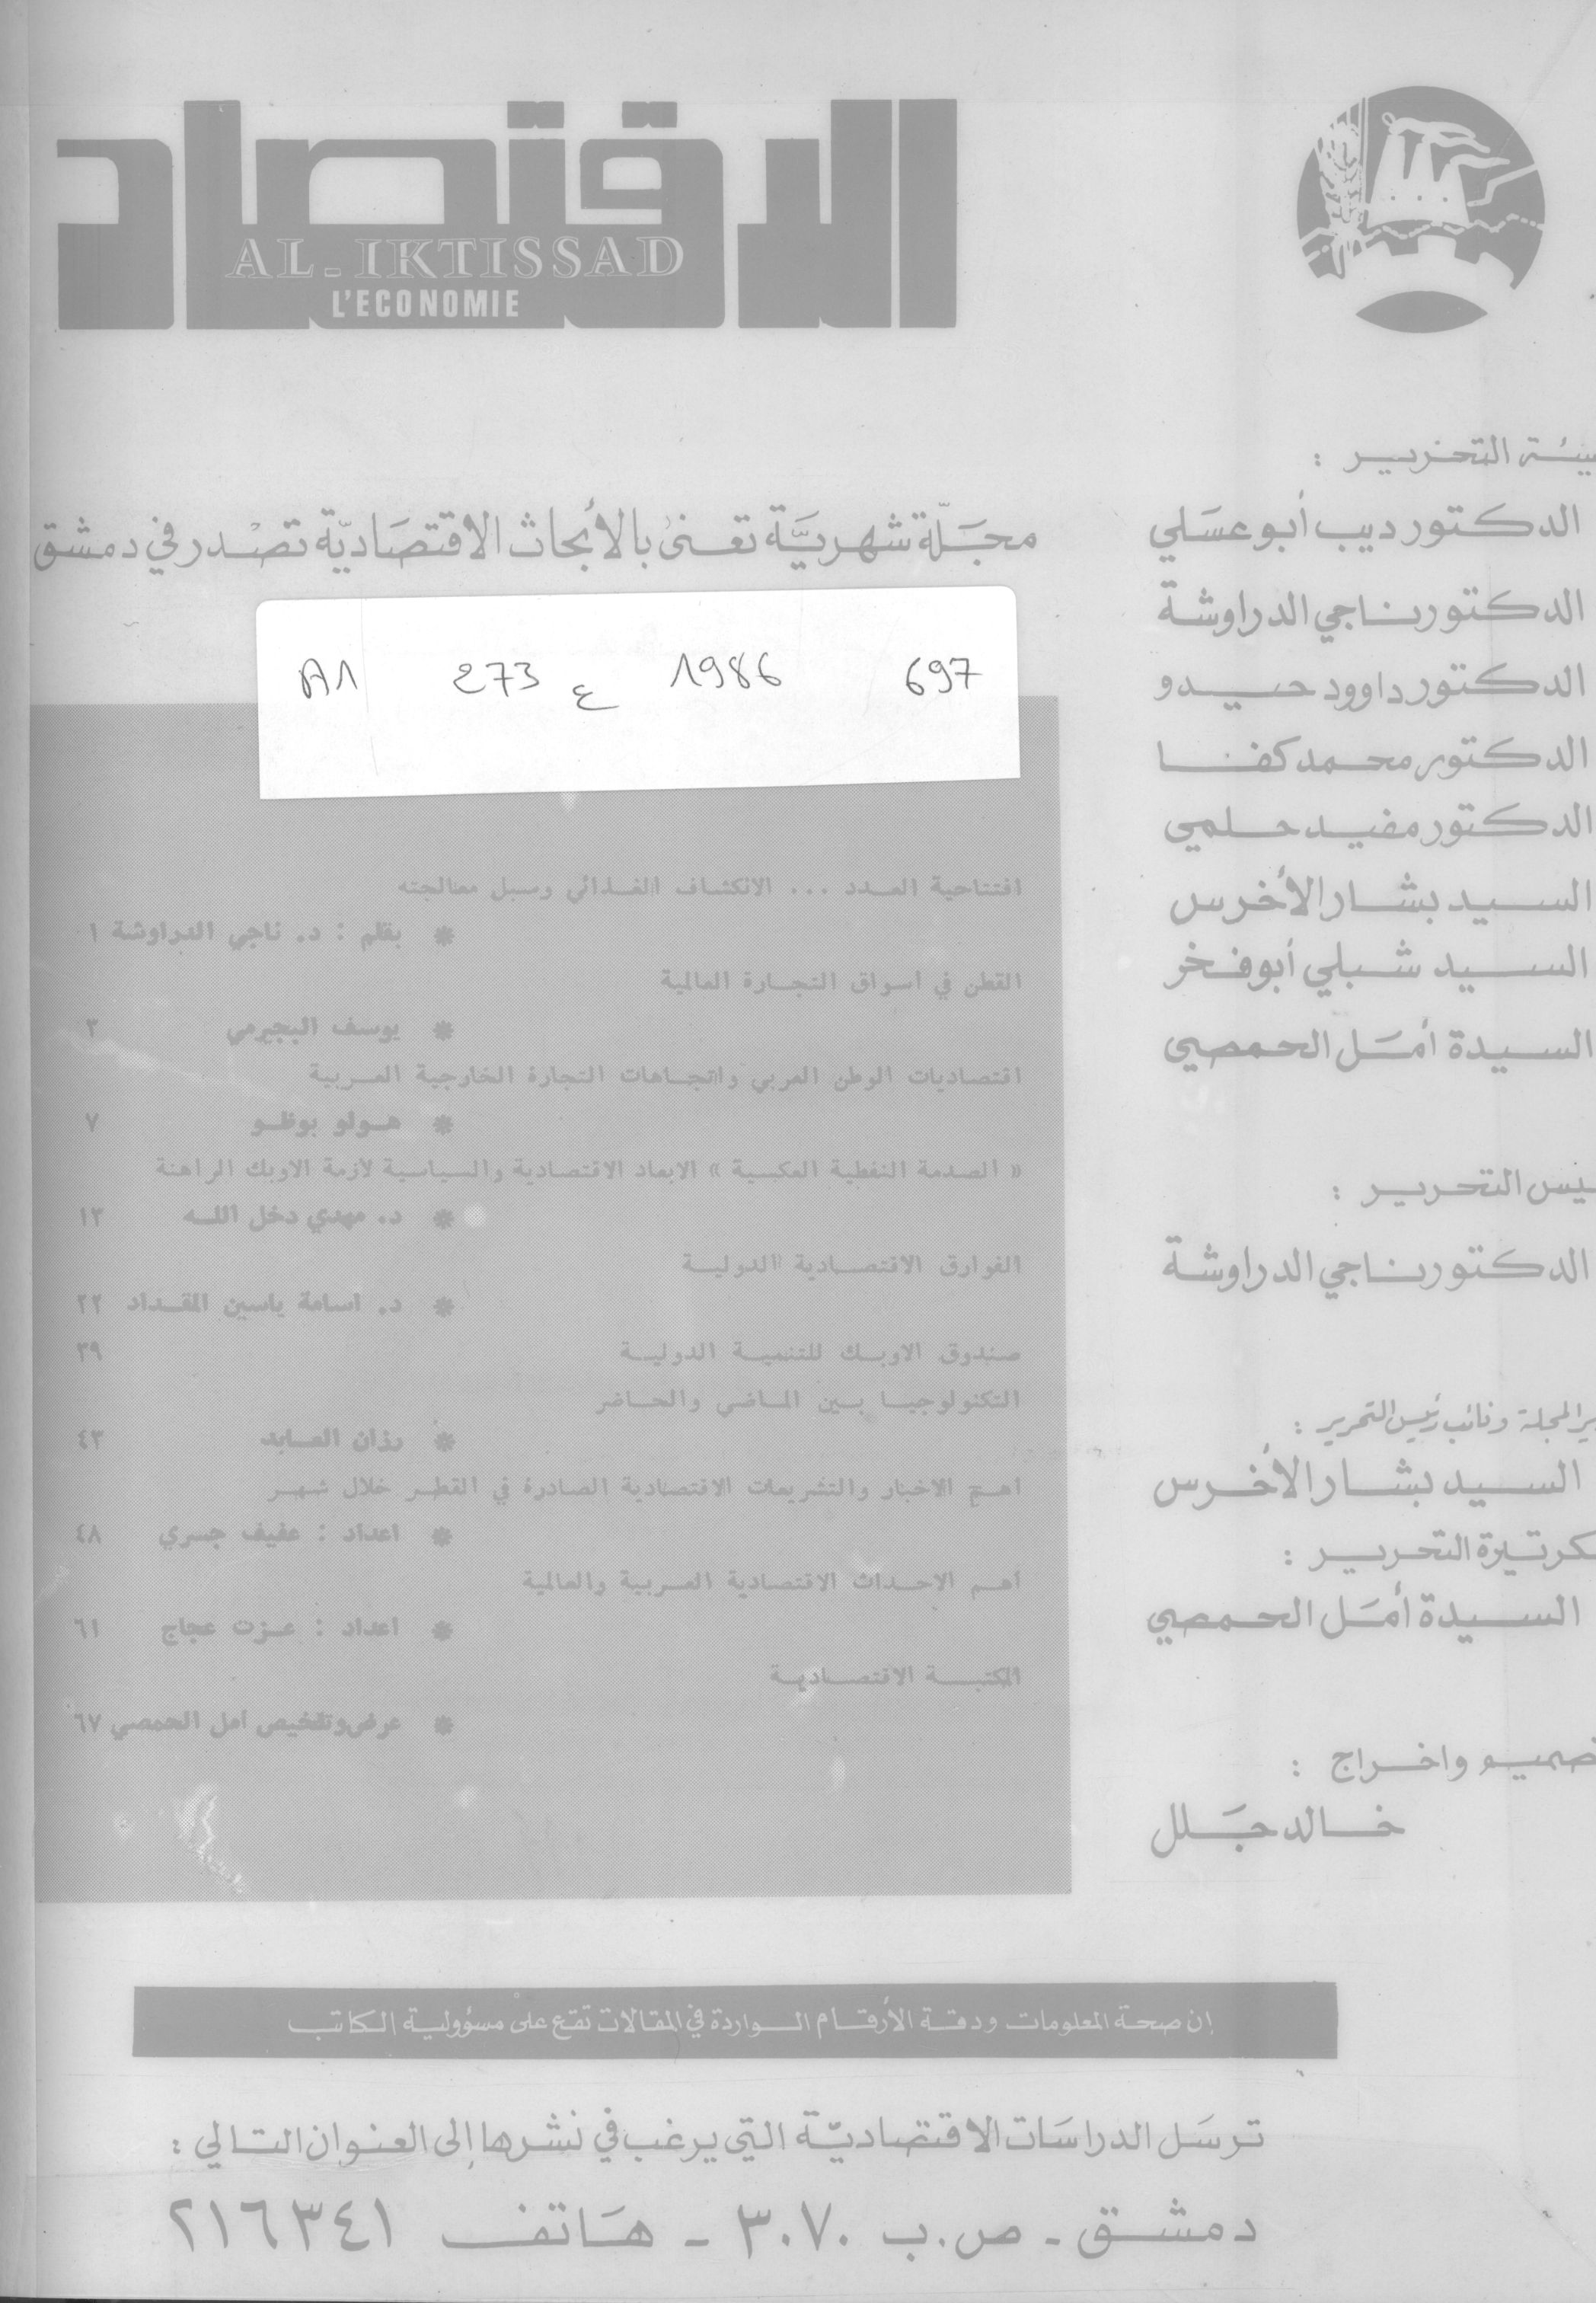 الاقتصاد
AL-IKTISSAD
L'ECONOMIE
مجلة شهرية تعنى بالأبحاث الاقتصادية تصدر في دمشق
A1 273 ع 1986 697
التحرير :
الدكتور ديب أبو عسلي
الدكتور ناجي الدراوشة
الدكتور داوود حيدو
الدكتور محمد كفا
الدكتور مفيد حلمي
السيد بشار الأخرس
السيد شبلي أبو فخر
السيدة أمل الحمصي
التحرير :
الدكتور ناجي الدراوشة
المجلة ونائب رئيس التحرير :
السيد بشار الأخرس
التحرير :
السيدة أمل الحمصي
واخراج :
خالد جلل
افتتاحية العدد ... الانكشاف الغذائي وسبل معالجته
* بقلم : د. ناجي الدراوشة ١
القطن في أسواق التجارة العالمية
* يوسف البجيرمي ٣
اقتصاديات الوطن العربي واتجاهات التجارة الخارجية العربية
* هولو بوظو ٧
« الصدمة النفطية العكسية » الابعاد الاقتصادية والسياسية لازمة الاوبك الراهنة
* د. مهدي دخل الله ١٣
الفوارق الاقتصادية الدولية
* د. اسامة ياسين المقداد ٢٢
صندوق الاوبك للتنمية الدولية ٣٩
التكنولوجيا بين الماضي والحاضر
* رزان العابد ٤٣
اهم الاخبار والتشريعات الاقتصادية الصادرة في القطر خلال شهر
* اعداد : عفيف جسري ٤٨
أهم الاحداث الاقتصادية العربية والعالمية
* اعداد : عزت عجاج ٦١
المكتبة الاقتصادية
* عرض وتلخيص أمل الحمصي ٦٧
إن صحة المعلومات ودقة الأرقام الواردة في المقالات تقع على مسؤولية الكاتب
ترسل الدراسات الاقتصادية التي يرغب في نشرها إلى العنوان التالي :
دمشق - ص.ب ٣٠٧٠ - هاتف ٢١٦٣٤١